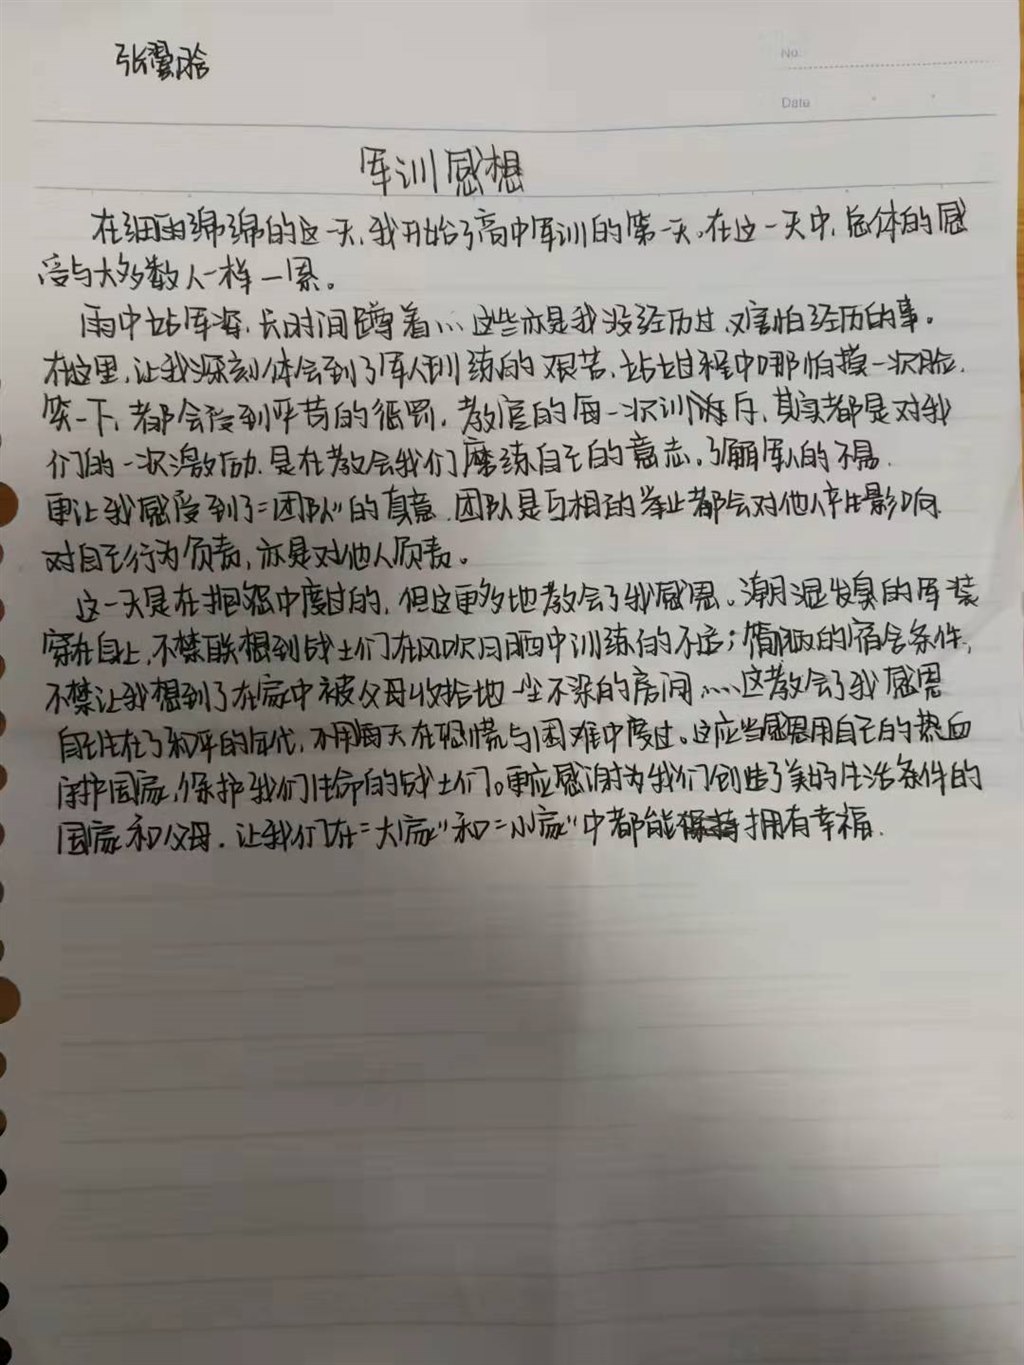 张
No.
Date
军训感想
在细雨绵绵的这一天,我开始了高中军训的第一天。在这一天中,总体的感
受与大多数人一样—累。
雨中站军姿,长时间蹲着……这些亦是我没经历过,又害怕经历的事。
在这里,让我深刻体会到了军人训练的艰苦,站过程中哪怕摸一次脸,
笑一下,都会受到严苛的惩罚,教官的每一次训斥,其实都是对我
们的一次激励,是在教会我们磨练自己的意志,了解军人的不易.
更让我感受到了“团队”的真意.团队是互相的举止都会对他人产生影响
对自己行为负责,亦是对他人负责。
这一天是在抱怨中度过的,但这更多地教会了我感恩。潮湿发臭的军装
穿在身上,不禁联想到战士们在风吹日晒中训练的不适;简陋的宿舍条件,
不禁让我想到了在家中被父母收拾地一尘不染的房间……这教会了我感恩
自己生在了和平的年代,不用每天在恐慌与困难中度过。这应当感恩用自己的热血
守护国家,保护我们生命的战士们。更应感谢为我们创造了美好生活条件的
国家和父母.让我们在“大家”和“小家”中都能拥有幸福.